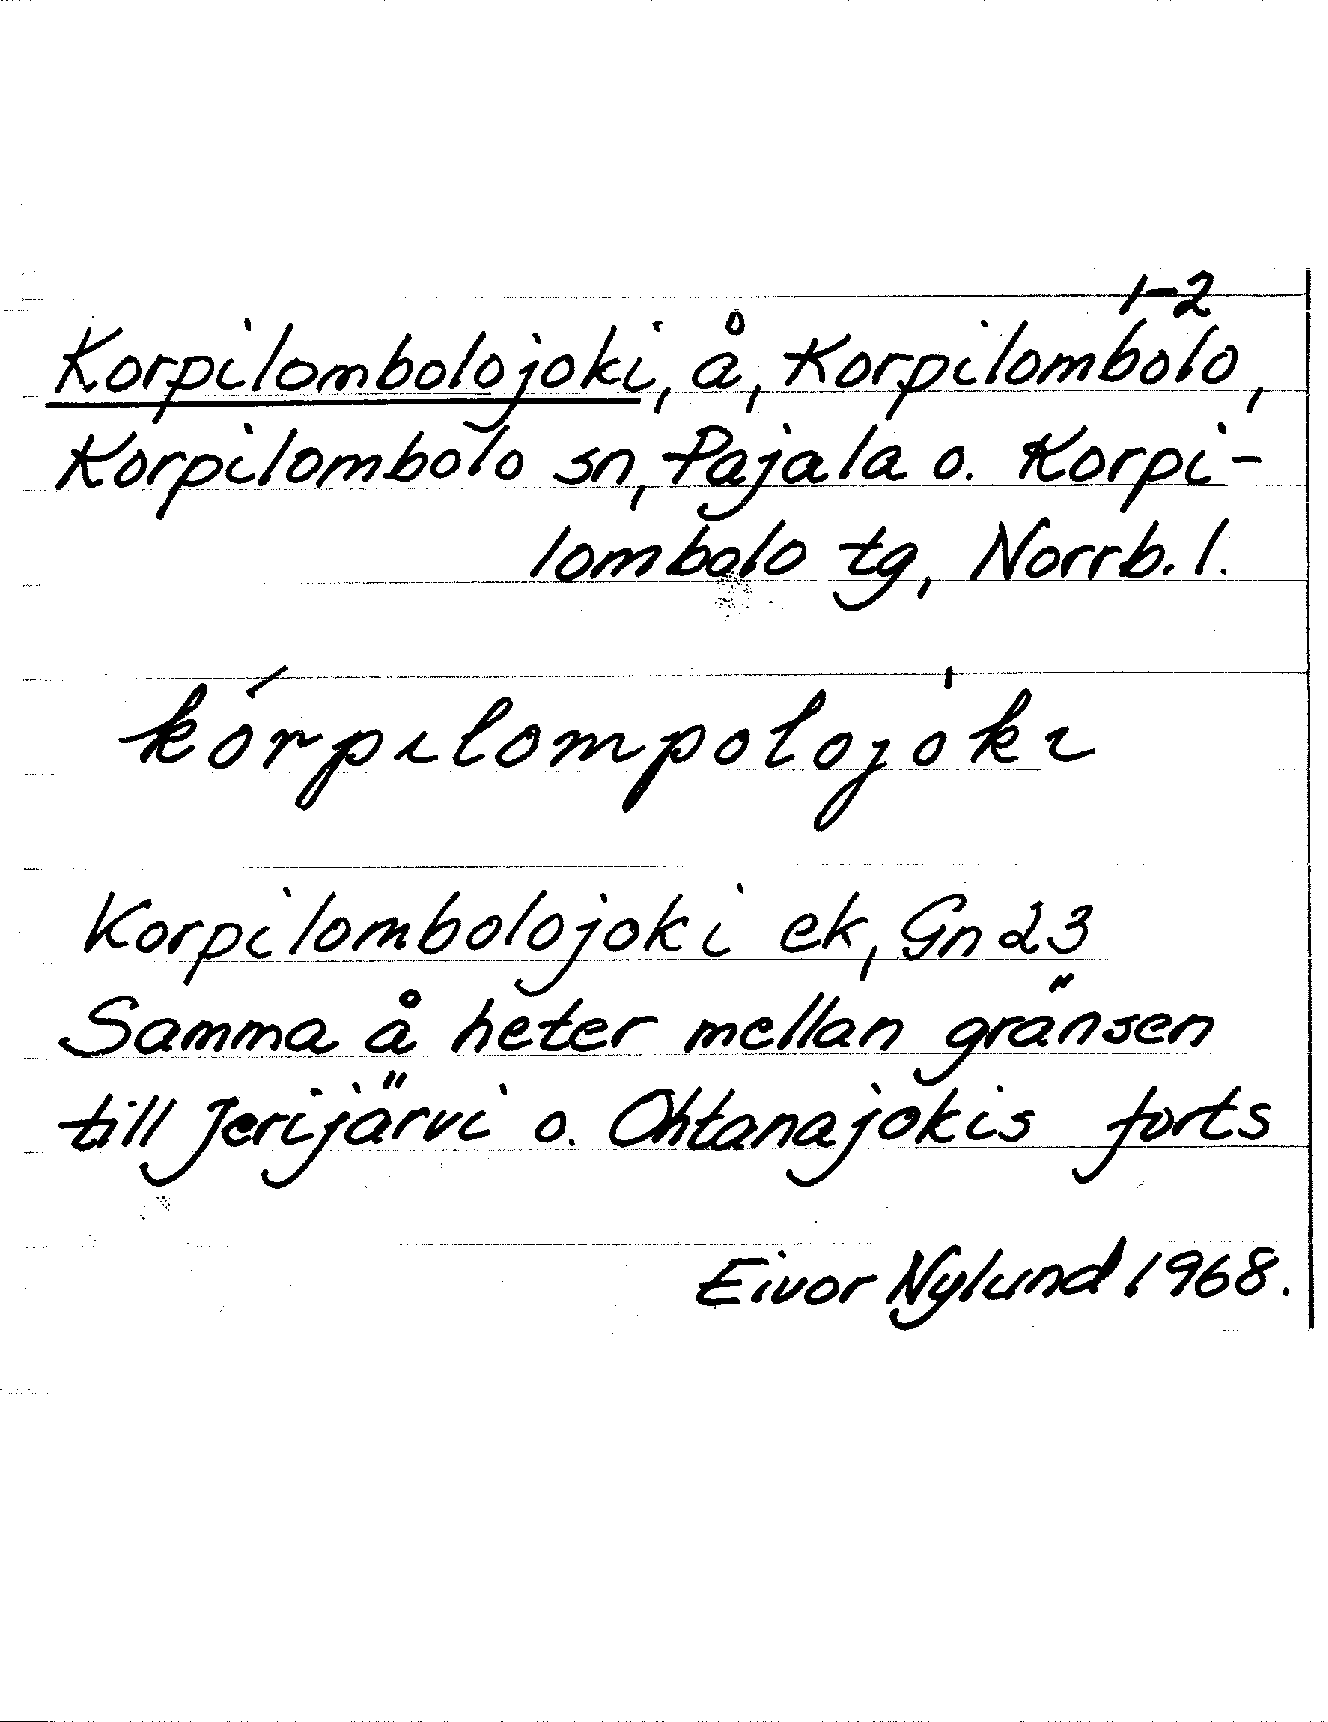 1-2
Korpilombolojoki, å, Korpilombolo,
Korpilombolo sn, Pajala o. Korpi-
lombolo tg, Norrb. l.
kórpılompoloȷo̍kı
Korpilombolojoki ek, Gn 23
Samma å heter mellan gränsen
till Jerijärvi o. Ohtanajokis forts
Eivor Nylund 1968.